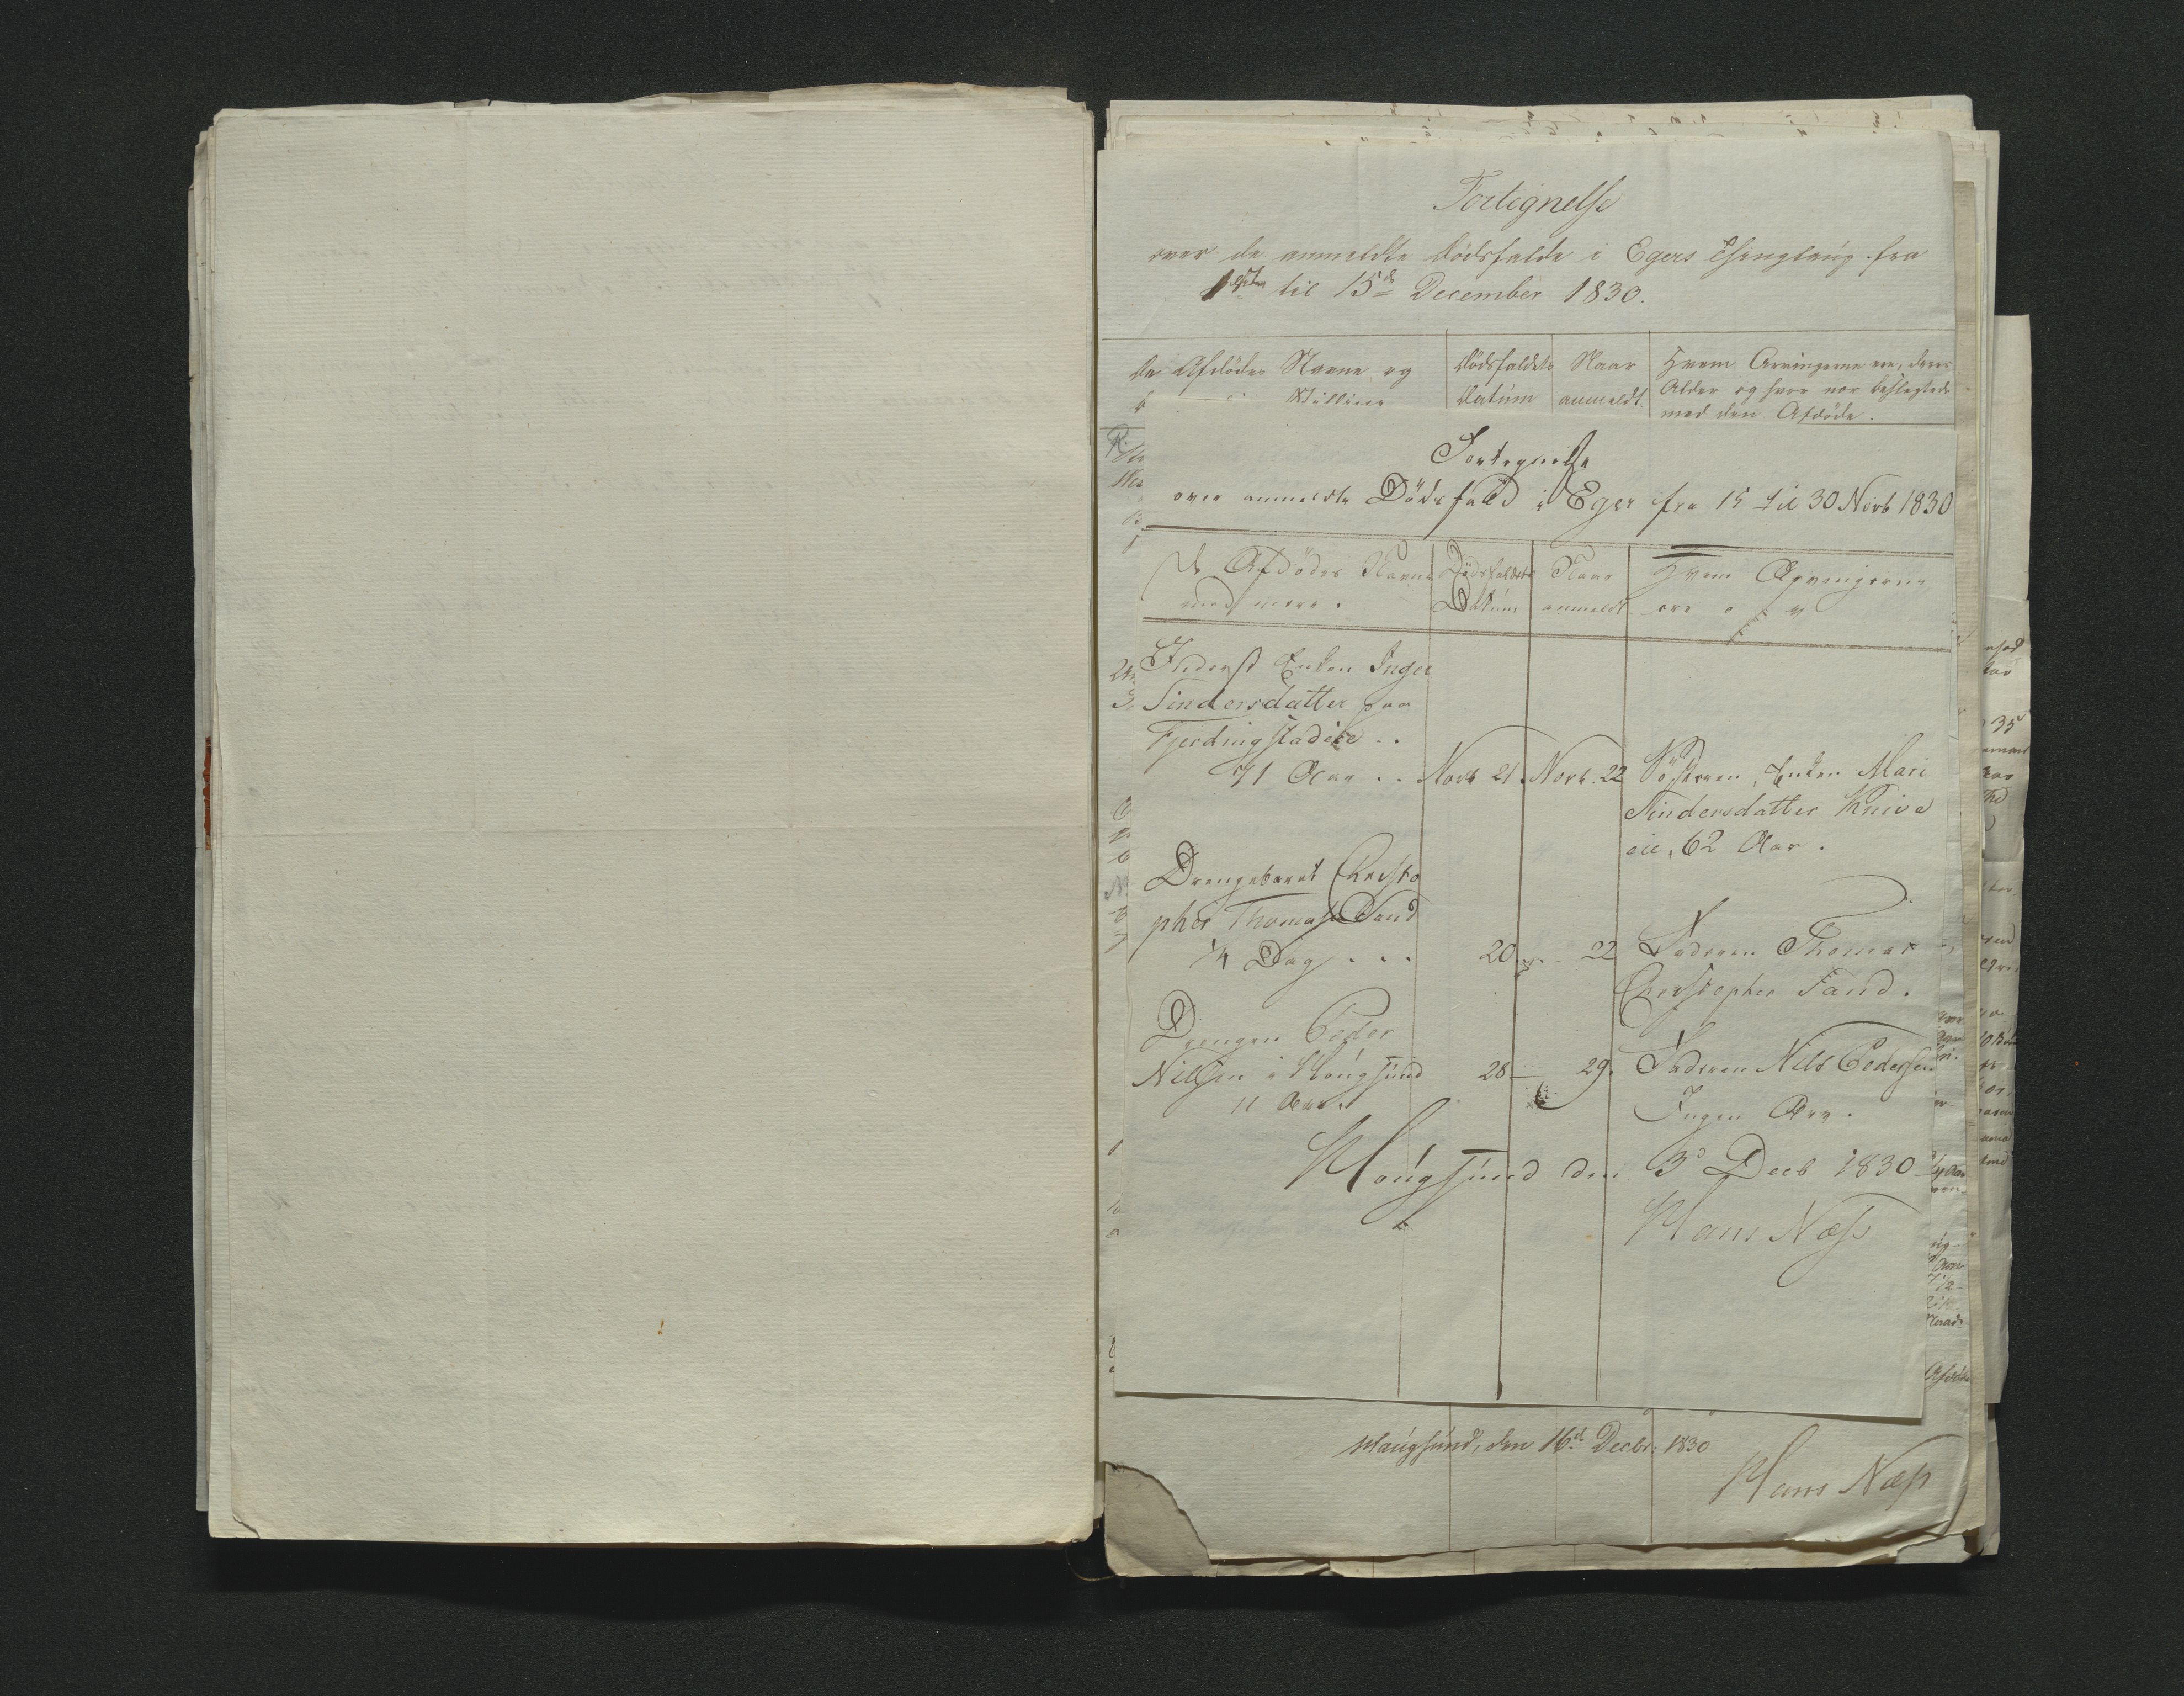 Fortegnelse
over de anmeldte Dödsfalde i Egers Thinglaug fra
1ste til 15de December 1830.
De Afdödes Navne og
Stilling
Dödsfaldets
Datum
Naar
anmeldt.
Hvem Arvingerne ere, deres
Alder og hvor nær beslegtede
med den Afdöde.
Fortegnelse
over anmeldte Dödsfald i Eger fra 15 til 30 Novb 1830
De Afdödes Navne
med mere.
Dödsfaldets
Datum
Naar
anmeldt
Hvem Arvingerne
ere
Inderst Enken Inger
Findersdatter paa
Fjerdingstadeie ..
71 Aar .. Novb 21. Novb. 22 Søsteren, Enken Mari
Findersdatter Knive
eie, 62 Aar.
Drengebarnet Christo
pher Thomasen Sand
1/4 Dag ... 20 22 Faderen Thomas
Christopher Sand.
Drengen Peder
Nilsen i Hougsund 28 29. Faderen Nils Pedersen
11 Aar. Ingen Arv.
Hougsund den 3d Decb 1830
Hans Næss
Haugsund, den 16de Decbr: 1830
Hans Næss